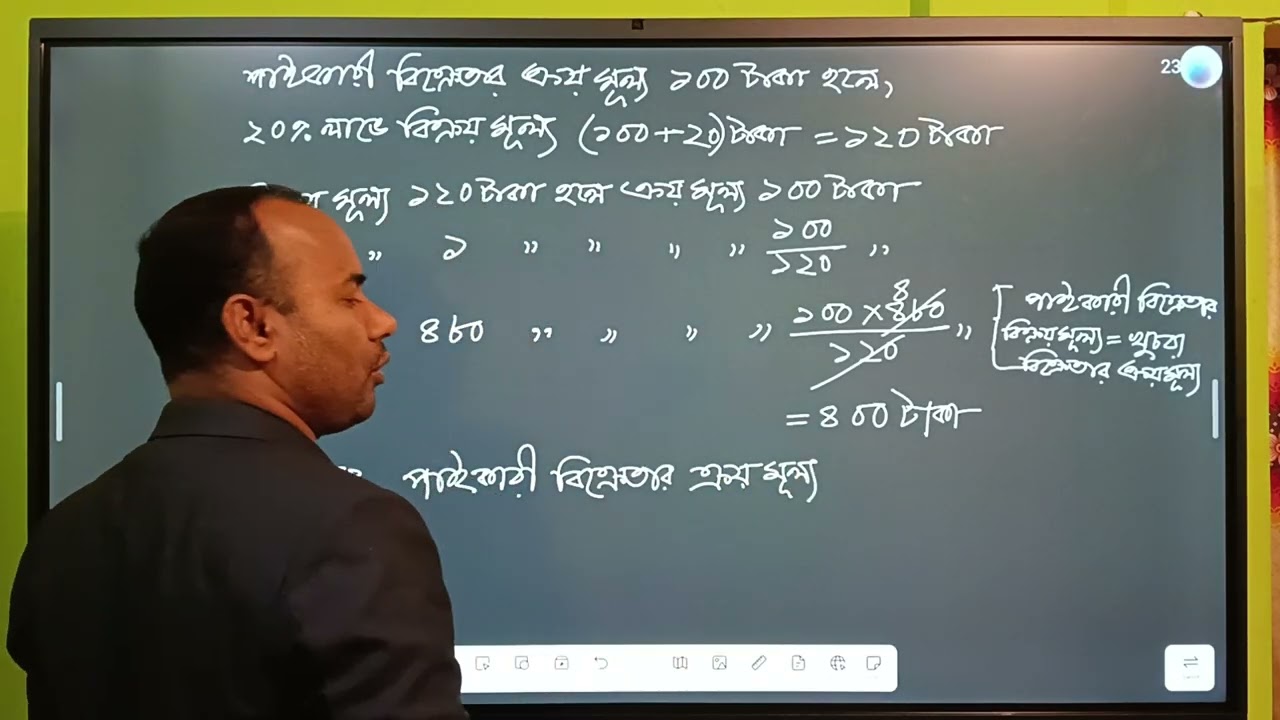 পাইকারী বিক্রেতার ক্রয় মূল্য ১০০ টাকা হলে,
২০% লাভে বিক্রয় মূল্য (১০০+২০) টাকা = ১২০ টাকা
মূল্য ১২০ টাকা হলে ক্রয় মূল্য ১০০ টাকা
" ১ " " " " ১০০/১২০ "
৪৮০ " " " " ১০০ × ৪৮০/১২০ "
৪
[পাইকারী বিক্রেতার
বিক্রয় মূল্য = খুচরা
বিক্রেতার ক্রয় মূল্য
= ৪০০ টাকা
পাইকারী বিক্রেতার ক্রয় মূল্য
23